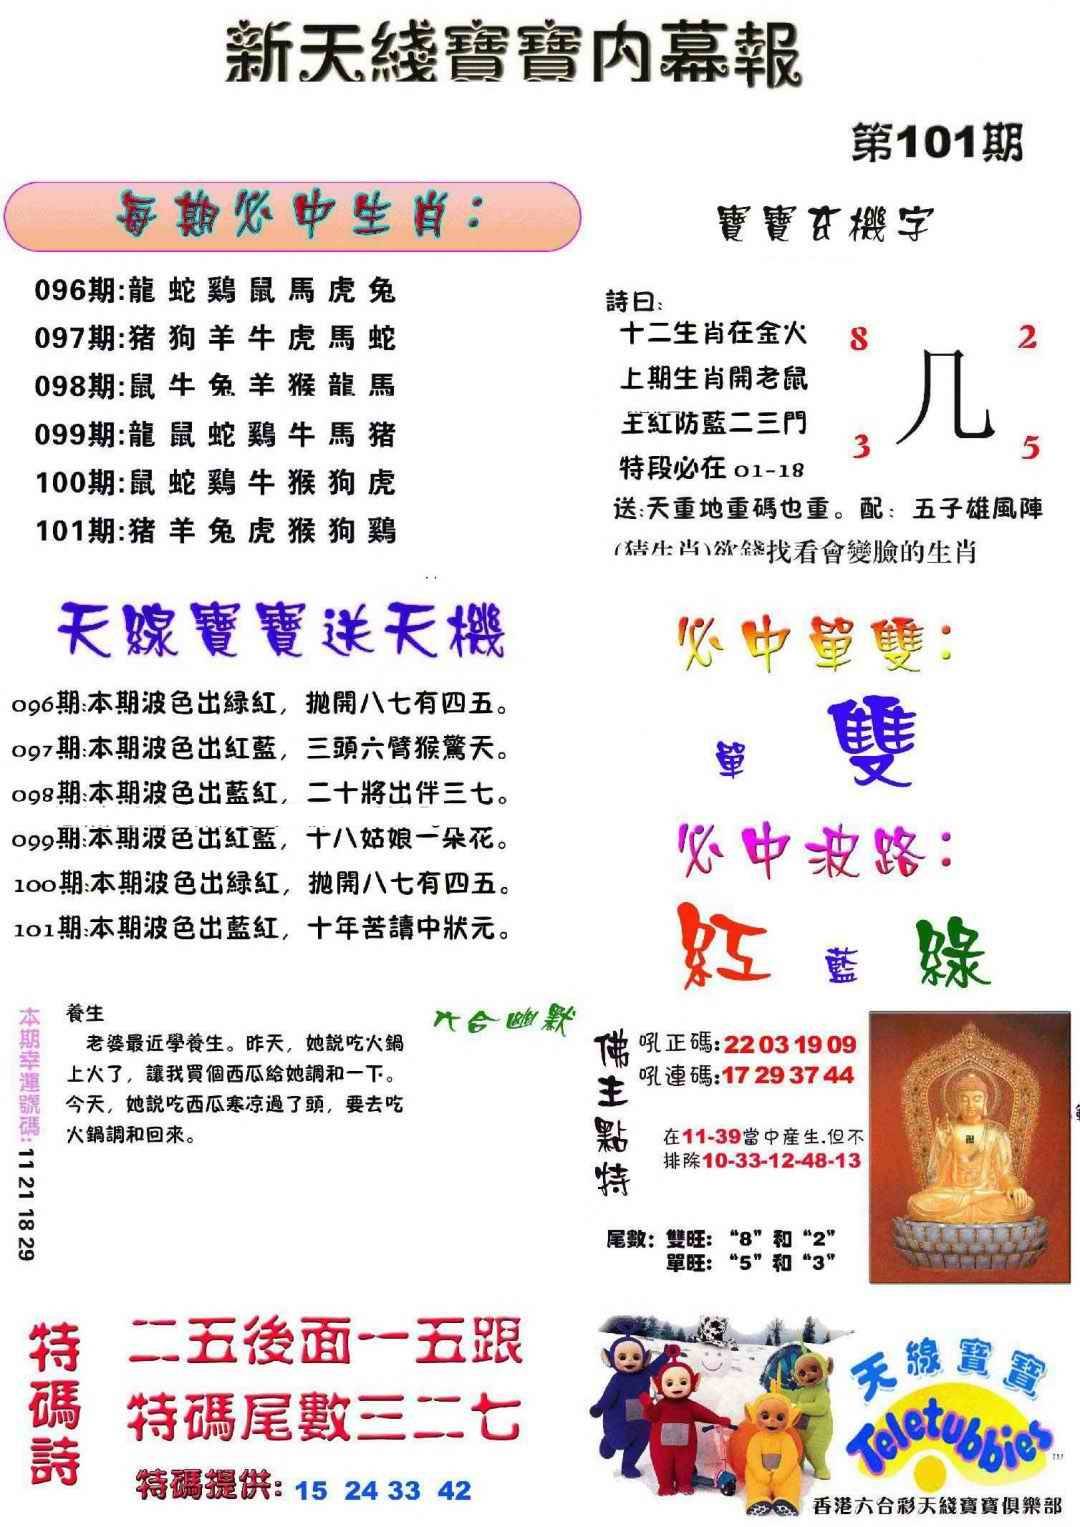 新天綫寶寶内幕報
第101期
每期必中生肖：
096期:龍蛇鷄鼠馬虎兔
097期:猪狗羊牛虎馬蛇
098期:鼠牛兔羊猴龍馬
099期:龍鼠蛇鷄牛馬猪
100期:鼠蛇鷄牛猴狗虎
101期:猪羊兔虎猴狗鷄
寶寶玄機字
詩曰:
十二生肖在金火
上期生肖開老鼠
主紅防藍二三門
特段必在 01-18
8 2
几
3 5
送:天重地重碼也重。配：五子雄風陣
(猜生肖)欲錢找看會變臉的生肖
天線寶寶送天機
096期:本期波色出緑紅，抛開八七有四五。
097期:本期波色出紅藍，三頭六臂猴驚天。
098期:本期波色出藍紅，二十將出伴三七。
099期:本期波色出紅藍，十八姑娘一朵花。
100期:本期波色出緑紅，抛開八七有四五。
101期:本期波色出藍紅，十年苦讀中狀元。
必中單雙：
單 雙
必中波路：
紅 藍 綠
本期幸運號碼: 11 21 18 29
六合幽默
養生
老婆最近學養生。昨天，她説吃火鍋
上火了，讓我買個西瓜給她調和一下。
今天，她説吃西瓜寒凉過了頭，要去吃
火鍋調和回來。
佛主點特
吼正碼:22 03 19 09
吼連碼:17 29 37 44
在11-39當中産生.但不
排除10-33-12-48-13
尾數：雙旺：“8”和“2”
單旺：“5”和“3”
特碼詩
二五後面一五跟
特碼尾數三二七
特碼提供: 15 24 33 42
天線寶寶
Teletubbies
TM
香港六合彩天綫寶寶俱樂部